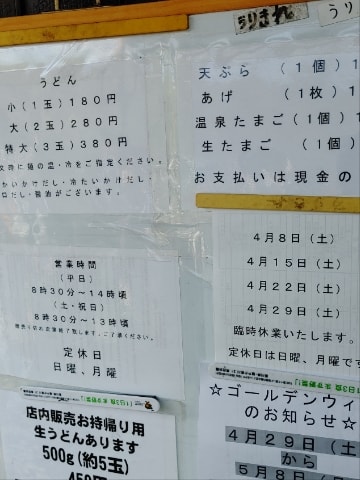 うりきれ
うり
うどん
小(1玉)180円
大(2玉)280円
特大(3玉)380円
文時に麺の温・冷をご指定ください。
かいかけだし・冷たいかけだし・
だし・醤油がございます。
天ぷら (1個) 1
あげ (1枚) 1
温泉たまご(1個)
生たまご (1個)
お支払いは現金の
営業時間
(平日)
8時30分~14時頃
(土・祝日)
8時30分~13時頃
定休日
日曜、月曜
4月8日(土)
4月15日(土)
4月22日(土)
4月29日(土)
臨時休業いたします。
定休日は日曜、月曜です
店内販売お持帰り用
生うどんあります
500g(約5玉)
450円
☆ゴールデンウィ
のお知らせ☆
4月29日(土)
から
5月8日(月)